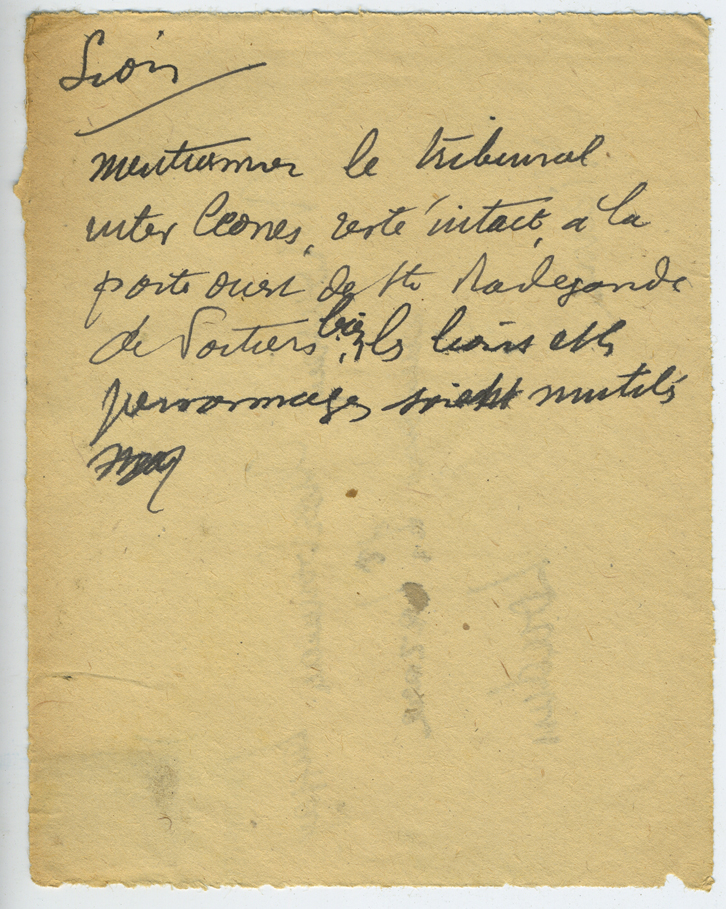 Lion
mentionner le tribunal
inter leones, resté intact, à la
porte ouest de Ste Radegonde
de Poitiers bien les lions et les
personnages soient mutilés